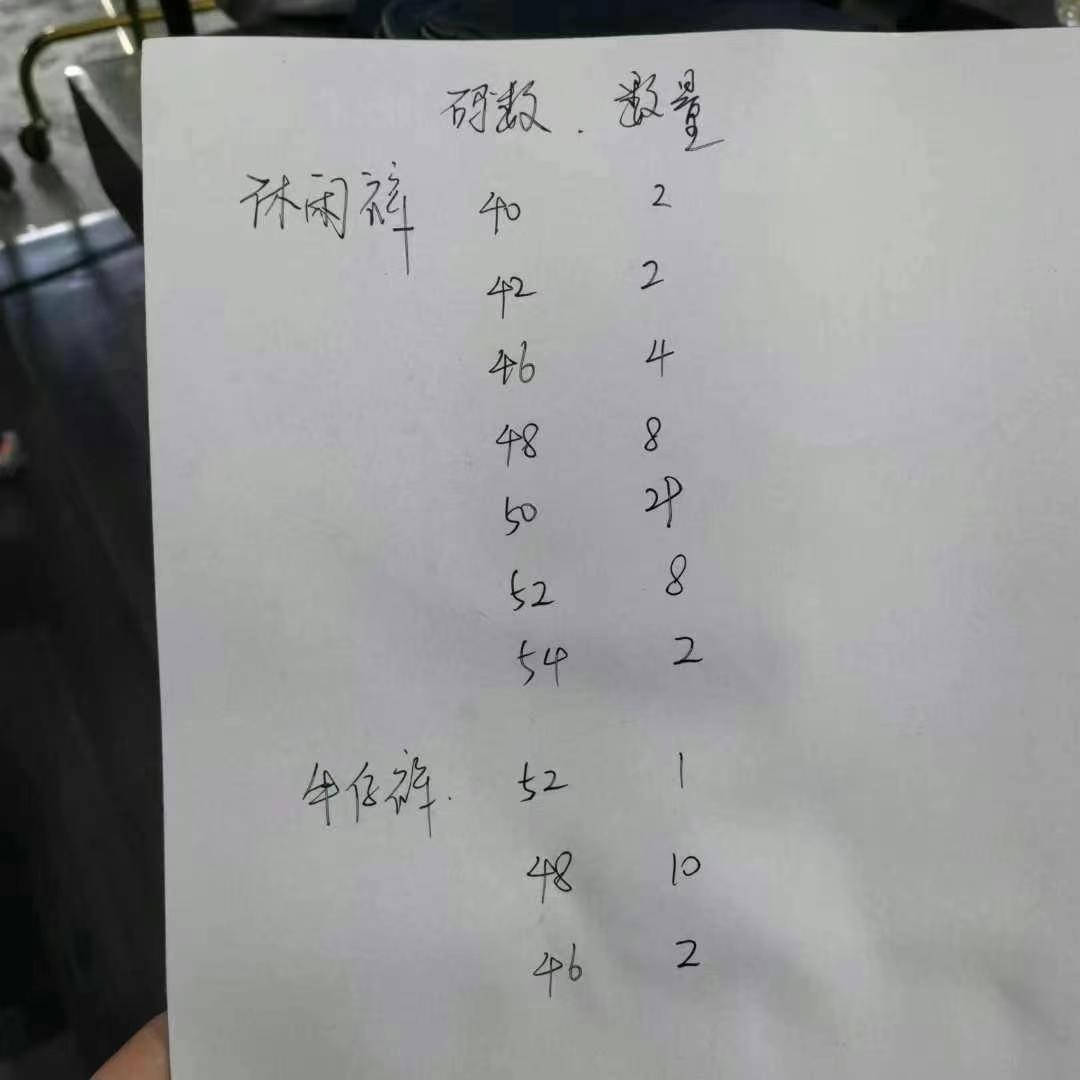 码数. 数量
休闲裤 40 2
42 2
46 4
48 8
50
52 8
54 2
牛仔裤. 52 1
48 10
46 2